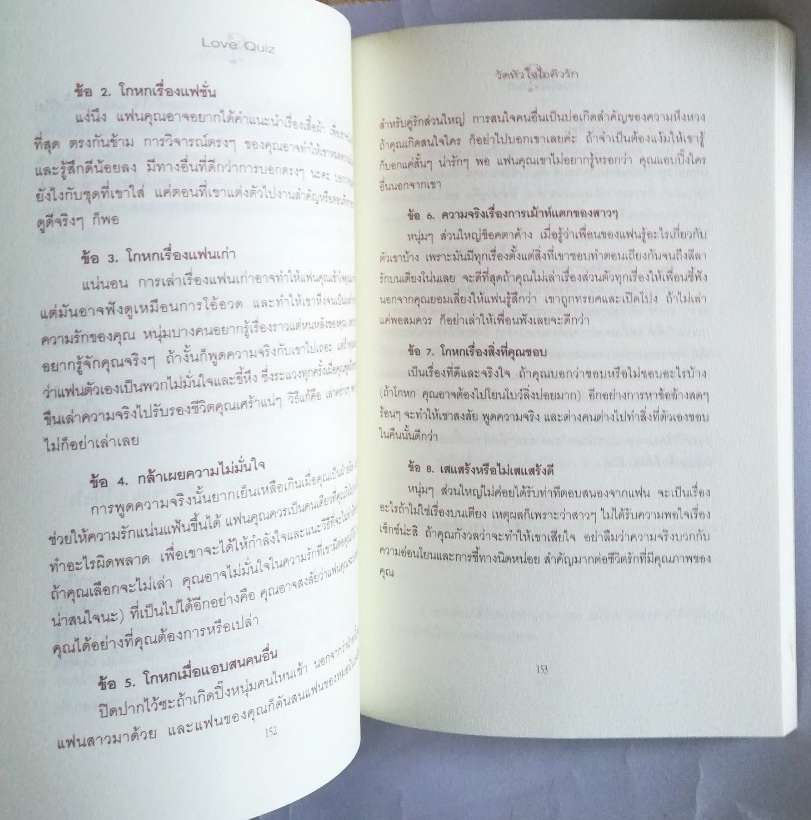 Love Quiz
ข้อ 2. โกหกเรื่องแฟชั่น
แง่นึง แฟนคุณอาจอยากได้คำแนะนำเรื่องเสื้อผ้า
ที่สุด ตรงกันข้าม การวิจารณ์ตรงๆ ของคุณอาจทำให้เขา
และรู้สึกดีน้อยลง มีทางอื่นที่ดีกว่าการบอกตรงๆ นะคะ
ยังไงกับชุดที่เขาใส่ แค่ตอนที่เขาแต่งตัวไปงานสำคัญหรือ
ดูดีจริงๆ ก็พอ
ข้อ 3. โกหกเรื่องแฟนเก่า
แน่นอน การเล่าเรื่องแฟนเก่าอาจทำให้แฟนคุณเข้าใจคุณ
แต่มันอาจฟังดูเหมือนการโอ้อวด และทำให้เขาหึงจน
ความรักของคุณ หนุ่มบางคนอยากรู้เรื่องราวแต่หนหลังของคุณ
อยากรู้จักคุณจริงๆ ถ้างั้นก็พูดความจริงกับเขาไปเถอะ
ว่าแฟนตัวเองเป็นพวกไม่มั่นใจและขี้หึง ซึ่งระแวงทุกครั้งเมื่อ
ขืนเล่าความจริงไปรับรองชีวิตคุณเศร้าแน่ๆ วิธีแก้คือ
ไม่ก็อย่าเล่าเลย
ข้อ 4. กล้าเผยความไม่มั่นใจ
การพูดความจริงนั้นยากเย็นเหลือเกินเมื่อคุณเป็น
ช่วยให้ความรักแน่นแฟ้นขึ้นได้ แฟนคุณควรเป็นคนเดียวที่
ทำอะไรผิดพลาด เพื่อเขาจะได้ให้กำลังใจและแนะวิธีที่จะ
ถ้าคุณเลือกจะไม่เล่า คุณอาจไม่มั่นใจในความรักที่เขามี
น่าสนใจนะ) ที่เป็นไปได้อีกอย่างคือ คุณอาจสงสัยว่าแฟน
คุณได้อย่างที่คุณต้องการหรือเปล่า
ข้อ 5. โกหกเมื่อแอบสนคนอื่น
ปิดปากไว้ซะถ้าเกิดปิ๊งหนุ่มคนไหนเข้า นอกจากว่า
แฟนสาวมาด้วย และแฟนของคุณก็ดันสนแฟนของ
152
วัดหัวใจไอคิวรัก
สำหรับคู่รักส่วนใหญ่ การสนใจคนอื่นเป็นบ่อเกิดสำคัญของความหึงหวง
ถ้าคุณเกิดสนใจใคร ก็อย่าไปบอกเขาเลยค่ะ ถ้าจำเป็นต้องแง้มให้เขารู้
ก็บอกแค่สั้นๆ น่ารักๆ พอ แฟนคุณเขาไม่อยากรู้หรอกว่า คุณแอบปิ๊งใคร
อื่นนอกจากเขา
ข้อ 6. ความจริงเรื่องการเม้าท์แตกของสาวๆ
หนุ่มๆ ส่วนใหญ่ช็อคตาค้าง เมื่อรู้ว่าเพื่อนของแฟนรู้อะไรเกี่ยวกับ
ตัวเขาบ้าง เพราะมันมีทุกเรื่องตั้งแต่สิ่งที่เขาชอบทำตอนเถียงกันจนถึงลีลา
รักบนเตียงโน่นเลย จะดีที่สุดถ้าคุณไม่เล่าเรื่องส่วนตัวทุกเรื่องให้เพื่อนซี้ฟัง
นอกจากคุณยอมเสี่ยงให้แฟนรู้สึกว่า เขาถูกทรยศและเปิดโปง ถ้าไม่เล่า
แค่พอสมควร ก็อย่าเล่าให้เพื่อนฟังเลยจะดีกว่า
ข้อ 7. โกหกเรื่องสิ่งที่คุณชอบ
เป็นเรื่องที่ดีและจริงใจ ถ้าคุณบอกว่าชอบหรือไม่ชอบอะไรบ้าง
(ถ้าโกหก คุณอาจต้องไปโยนโบว์ลิ่งบ่อยมาก) อีกอย่างการหาข้ออ้างสดๆ
ร้อนๆ จะทำให้เขาสงสัย พูดความจริง และต่างคนต่างไปทำสิ่งที่ตัวเองชอบ
ในคืนนั้นดีกว่า
ข้อ 8. เสแสร้งหรือไม่เสแสร้งดี
หนุ่มๆ ส่วนใหญ่ไม่ค่อยได้รับท่าทีตอบสนองจากแฟน จะเป็นเรื่อง
อะไรถ้าไม่ใช่เรื่องบนเตียง เหตุผลก็เพราะว่าสาวๆ ไม่ได้รับความพอใจเรื่อง
เซ็กซ์น่ะสิ ถ้าคุณกังวลว่าจะทำให้เขาเสียใจ อย่าลืมว่าความจริงบวกกับ
ความอ่อนโยนและการชี้ทางนิดหน่อย สำคัญมากต่อชีวิตรักที่มีคุณภาพของ
คุณ
153